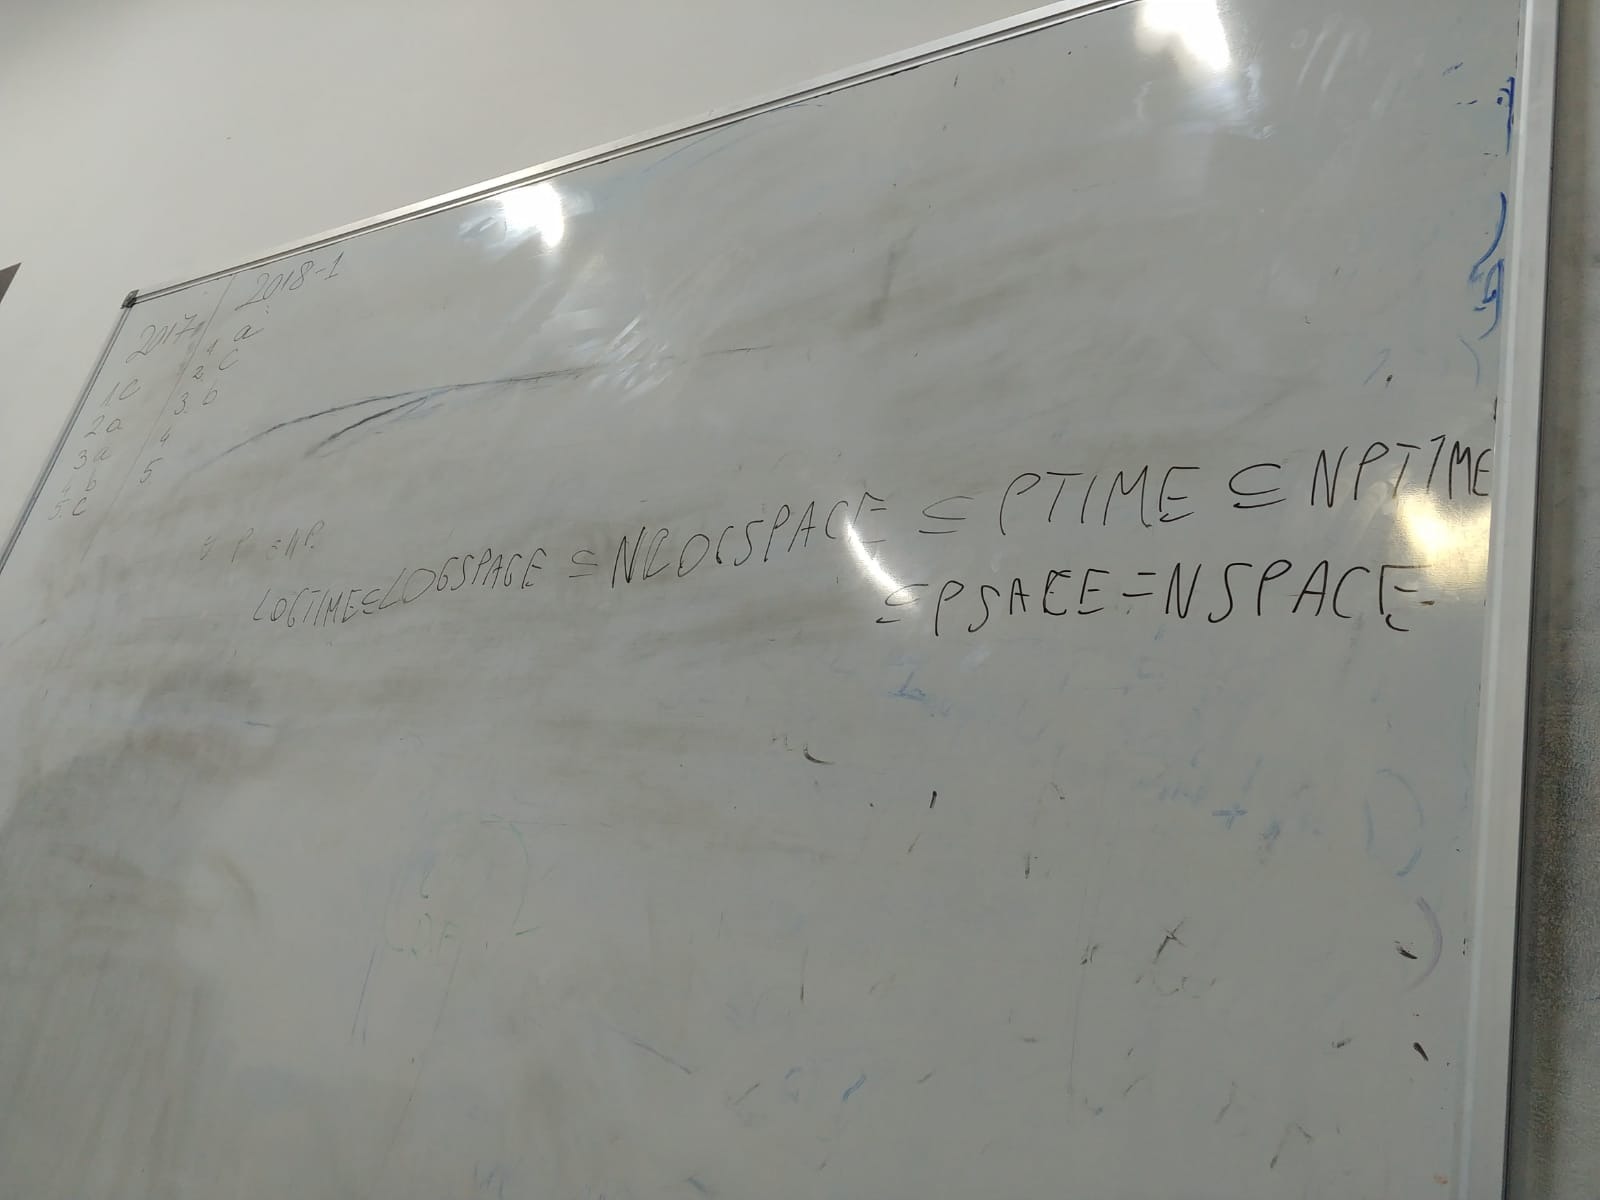 2017
1. C
2 a
3 a
4. b
5. C
2018-1
1 a
2. C
3. b
4
5
LOGTIME⊆LOGSPACE ⊆ NLOGSPACE ⊆ PTIME ⊆ NPTIME
⊆ PSACE = NSPACE